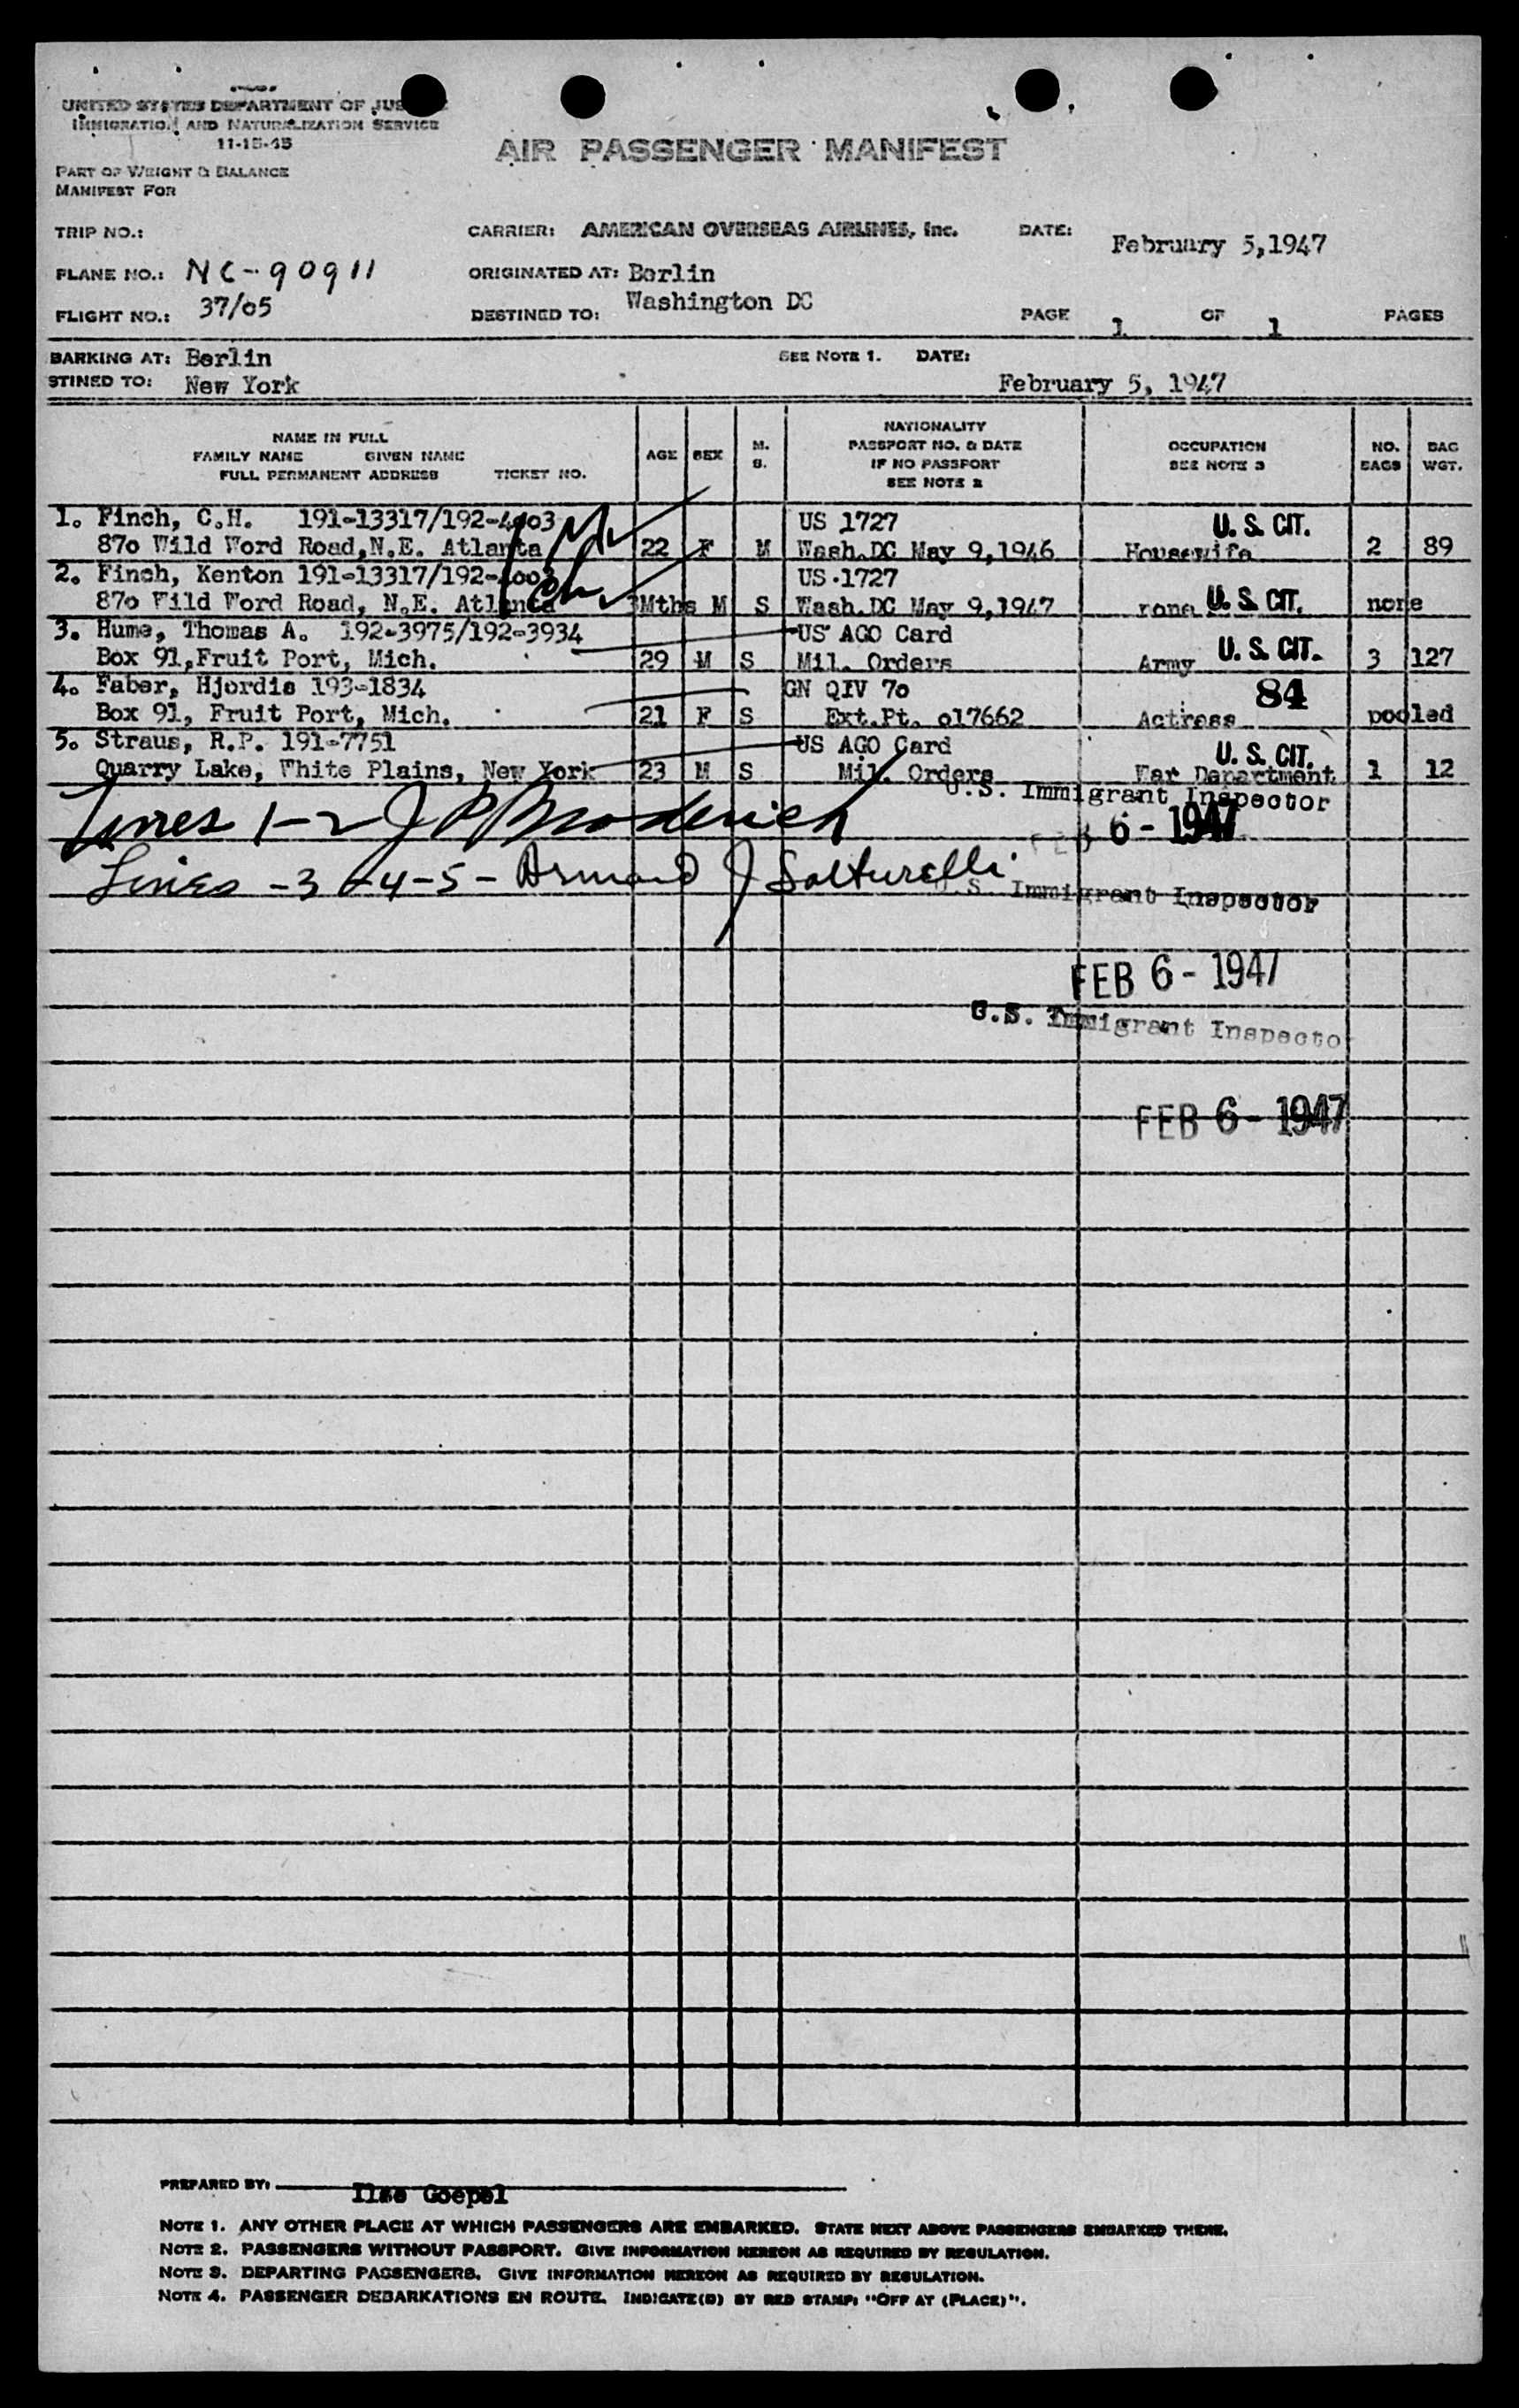 UNITED STATES DEPARTMENT OF JUS
IMMIGRATION AND NATURALIZATION SERVICE
11-15-45
AIR PASSENGER MANIFEST
PART OF WEIGHT & BALANCE
MANIFEST FOR
TRIP NO.: CARRIER: AMERICAN OVERSEAS AIRLINES, Inc. DATE: February 5,1947
PLANE NO.: NC-90911 ORIGINATED AT: Berlin
FLIGHT NO.: 37/05 DESTINED TO: Washington DC PAGE 1 OF 1 PAGES
BARKING AT: Berlin SEE NOTE 1. DATE:
STINED TO: New York February 5, 1947
NAME IN FULL
FAMILY NAME GIVEN NAME
FULL PERMANENT ADDRESS TICKET NO.
AGE SEX M. S.
NATIONALITY
PASSPORT NO. & DATE
IF NO PASSPORT
SEE NOTE 2
OCCUPATION
SEE NOTE 3
NO. BAGS
BAG WGT.
1. Finch, C.H. 191-13317/192-4003 US 1727 U. S. CIT.
870 Wild Word Road,N.E. Atlanta 22 F M Wash.DC May 9,1946 Housewife 2 89
2. Finch, Kenton 191-13317/192-4003 US.1727
870 Wild Word Road, N.E. Atlanta 3Mths M S Wash.DC May 9,1947 none U. S. CIT. none
3. Hume, Thomas A. 192-3975/192-3934 US AGO Card
Box 91,Fruit Port, Mich. 29 M S Mil. Orders Army U. S. CIT. 3 127
4. Faber, Hjordis 193-1834 GN QIV 70 84
Box 91, Fruit Port, Mich. 21 F S Ext.Pt. o17662 Actress pooled
5. Straus, R.P. 191-7751 US AGO Card U. S. CIT.
Quarry Lake, White Plains, New York 23 M S Mil. Orders War Department 1 12
U.S. Immigrant Inspector
Lines 1-2 J P Broderick FEB 6 - 1947
Lines -3-4-5- Armand J Salturelli
U.S. Immigrant Inspector
FEB 6 - 1947
U.S. Immigrant Inspecto
FEB 6 - 1947
PREPARED BY: Ilse Goepel
NOTE 1. ANY OTHER PLACE AT WHICH PASSENGERS ARE EMBARKED. STATE NEXT ABOVE PASSENGERS EMBARKED THERE.
NOTE 2. PASSENGERS WITHOUT PASSPORT. GIVE INFORMATION HEREON AS REQUIRED BY REGULATION.
NOTE 3. DEPARTING PASSENGERS. GIVE INFORMATION HEREON AS REQUIRED BY REGULATION.
NOTE 4. PASSENGER DEBARKATIONS EN ROUTE. INDICATE(D) BY RED STAMP: "OFF AT (PLACE)".